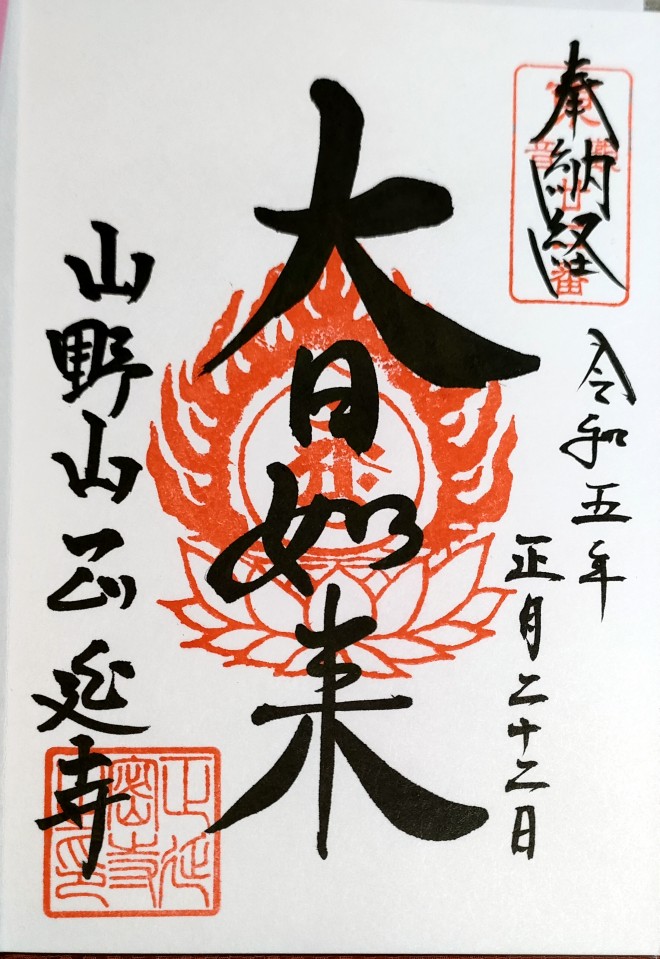 奉納経
令和五年
正月二十二日
大日如来
山野山正延寺